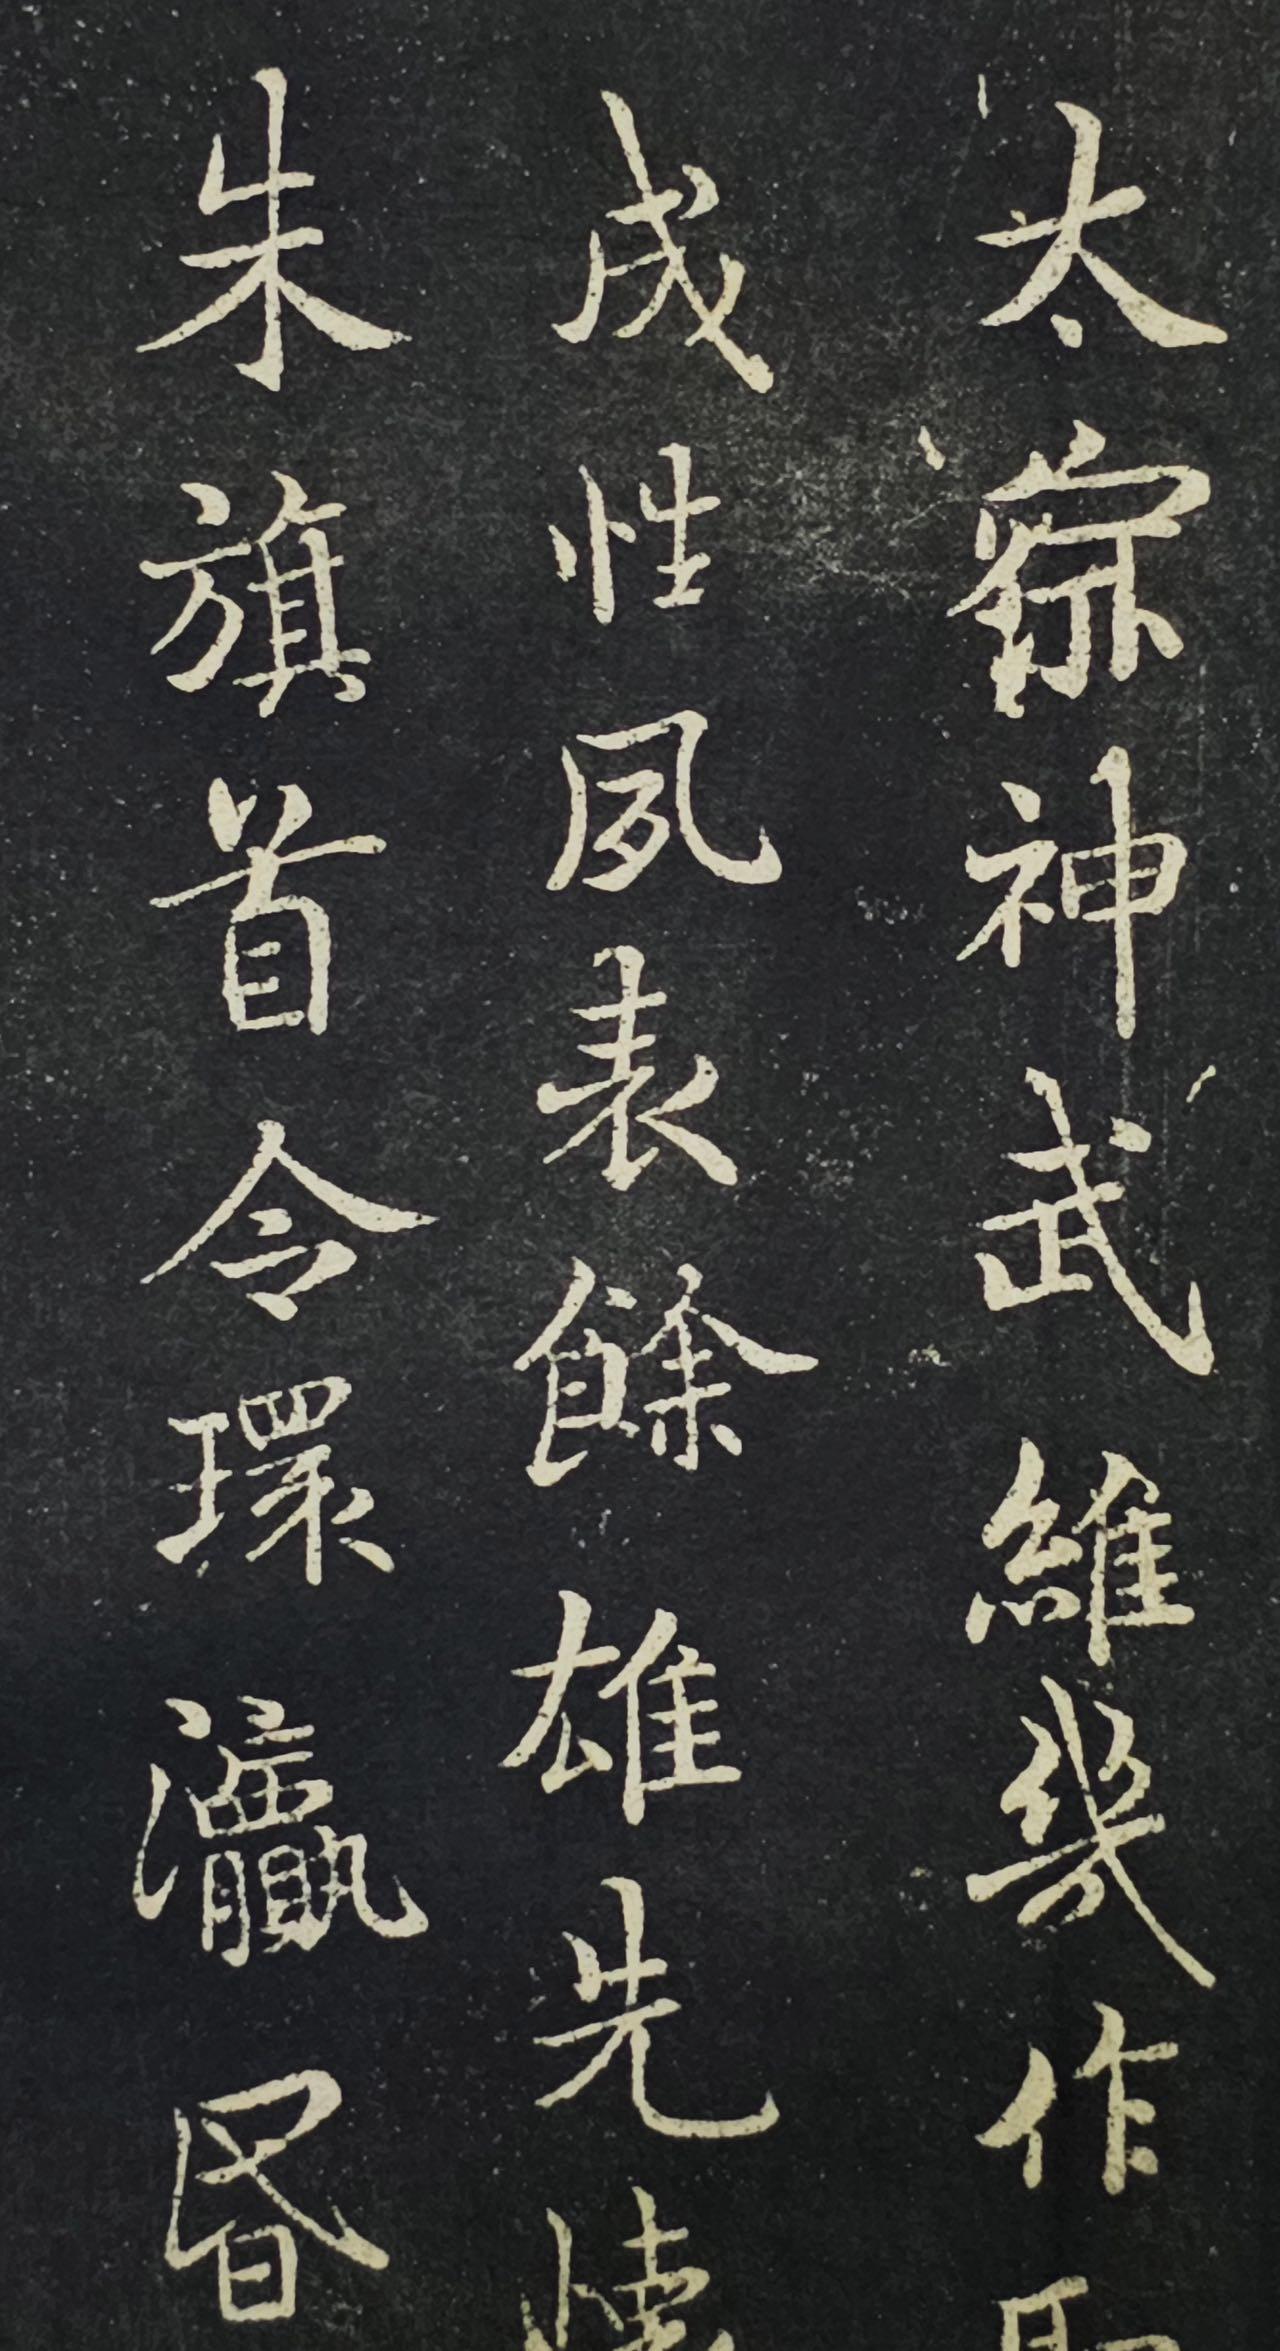 太神武維幾作
成性夙表餘雄先
朱旗首令環瀛昏